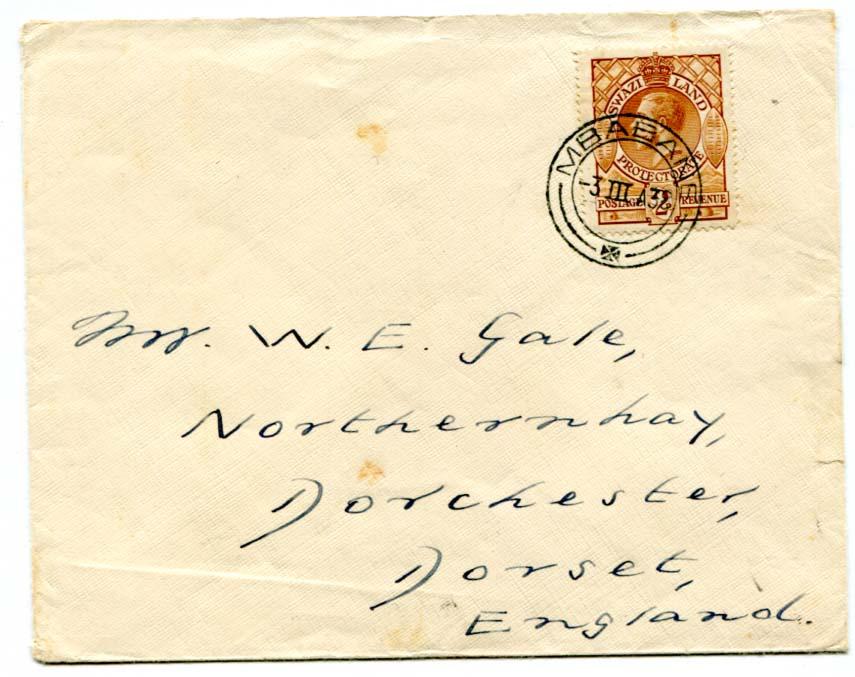 SWAZI LAND
PROTECTORATE
POSTAGE 2D REVENUE
MBABANE
-3 III A
Mr. W. E. Gale,
Northernhay,
Dorchester,
Dorset,
England.